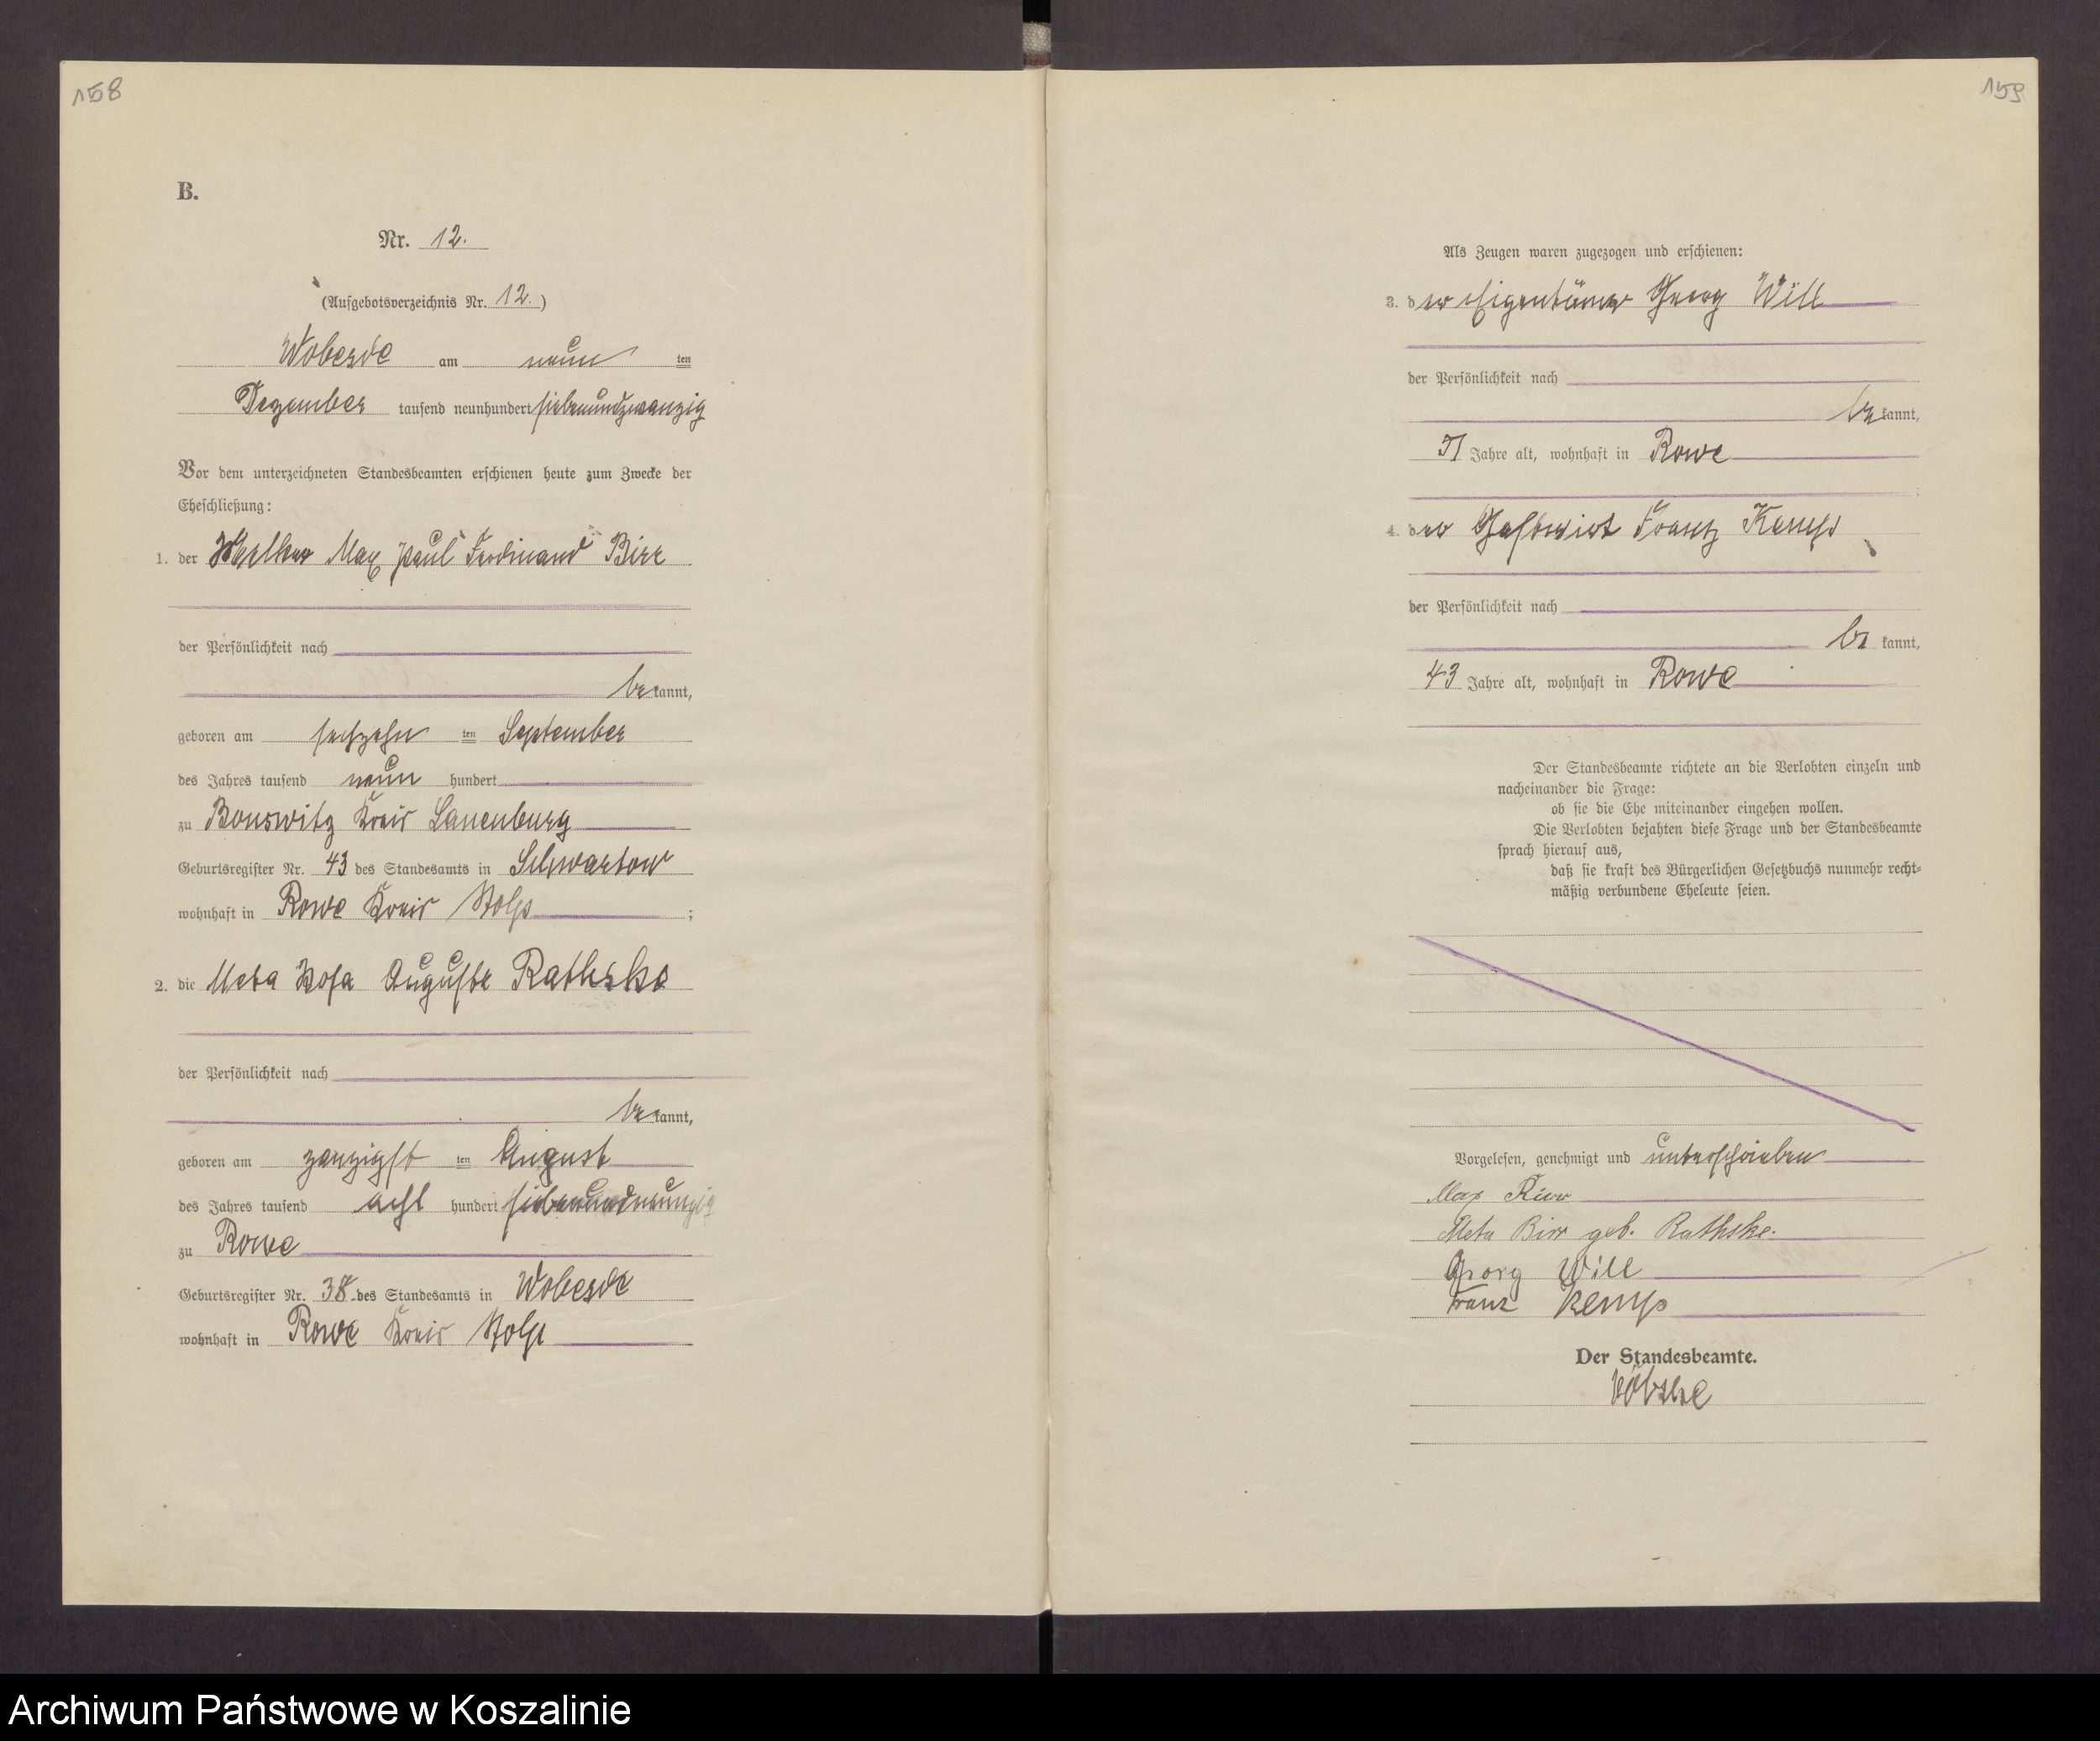 158
B.
Nr. 12.
(Aufgebotsverzeichnis Nr. 12.)
Wobesde am neun ten
Dezember tausend neunhundert siebenundzwanzig
Vor dem unterzeichneten Standesbeamten erschienen heute zum Zwecke der
Eheschließung:
1. der Max Paul Ferdinand Birr
der Persönlichkeit nach
bekannt,
geboren am sechzehn ten September
des Jahres tausend neun hundert
zu Bonswitz Kreis Lauenburg
Geburtsregister Nr. 43 des Standesamts in Schwartow
wohnhaft in Rowe Kreis Stolp ;
2. die Meta Rosa Auguste Rathske
der Persönlichkeit nach
bekannt,
geboren am zanzigst ten August
des Jahres tausend acht hundert siebenundneunzig
zu Rowe
Geburtsregister Nr. 38 des Standesamts in Wobesde
wohnhaft in Rowe Kreis Stolp
159
Als Zeugen waren zugezogen und erschienen:
3. der Eigentümer Georg Will
der Persönlichkeit nach
bekannt,
Jahre alt, wohnhaft in Rowe
4. der Gastwirt Franz Kemp
der Persönlichkeit nach
bekannt,
43 Jahre alt, wohnhaft in Rowe
Der Standesbeamte richtete an die Verlobten einzeln und
nacheinander die Frage:
ob sie die Ehe miteinander eingehen wollen.
Die Verlobten bejahten diese Frage und der Standesbeamte
sprach hierauf aus,
daß sie kraft des Bürgerlichen Gesetzbuchs nunmehr recht-
mäßig verbundene Eheleute seien.
Vorgelesen, genehmigt und unterschrieben
Max Birr
Meta Birr geb. Rathske.
Georg Will
Franz Kemp
Der Standesbeamte.
Archiwum Państwowe w Koszalinie